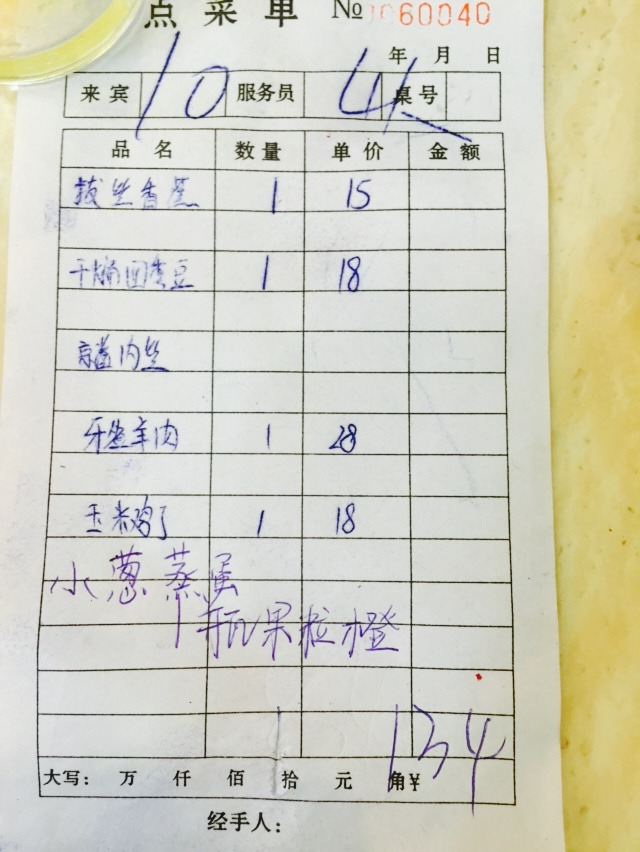 点菜单 № 0060040
年 月 日
来宾 10 服务员 4 桌号
品名 数量 单价 金额
拔丝香蕉 1 15
干煸四季豆 1 18
京酱肉丝
牙签羊肉 1 28
玉米鸡丁 1 18
小葱蒸蛋
1瓶果粒橙
134
大写: 万 仟 佰 拾 元 角 ¥
经手人: